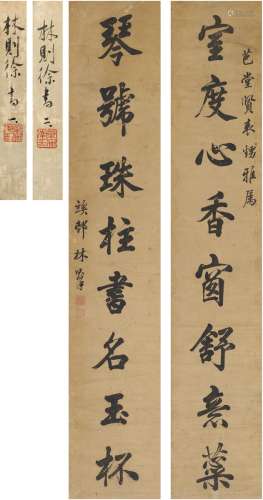 室度心香窗舒意蘂
芭堂賢表甥雅屬
琴號珠柱書名玉杯
竢邨林則徐
林則徐書
林則徐書